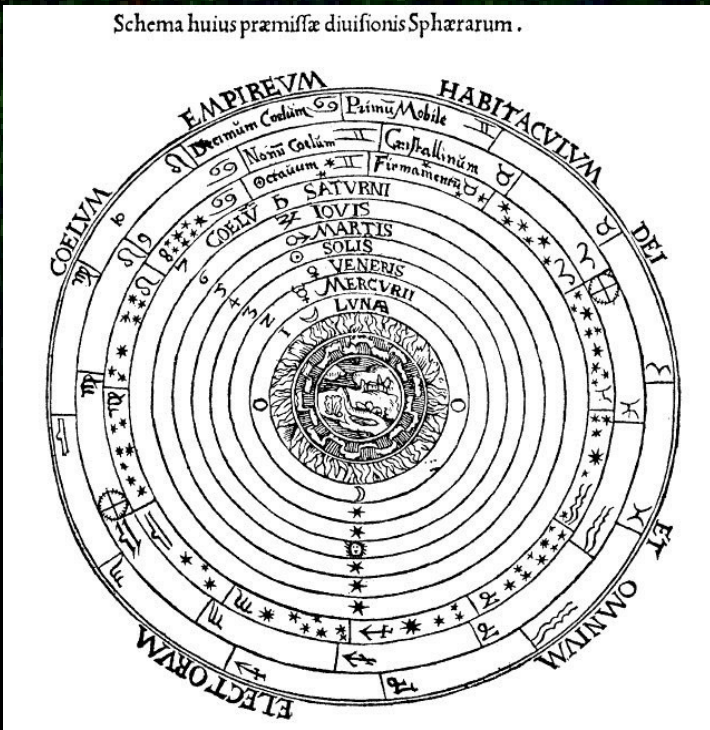 Schema huius præmissæ diuisionis Sphærarum .
COELVM EMPIREVM HABITACVLVM DEI ET OMNIVM ELECTORVM
Decimum Coelum Primũ Mobile
Nonũ Coelum Cristallinum
Octauum Firmamentũ
COELṼ SATVRNI
IOVIS
MARTIS
SOLIS
VENERIS
MERCVRII
LVNÆ
7 6 5 4 3 2 1